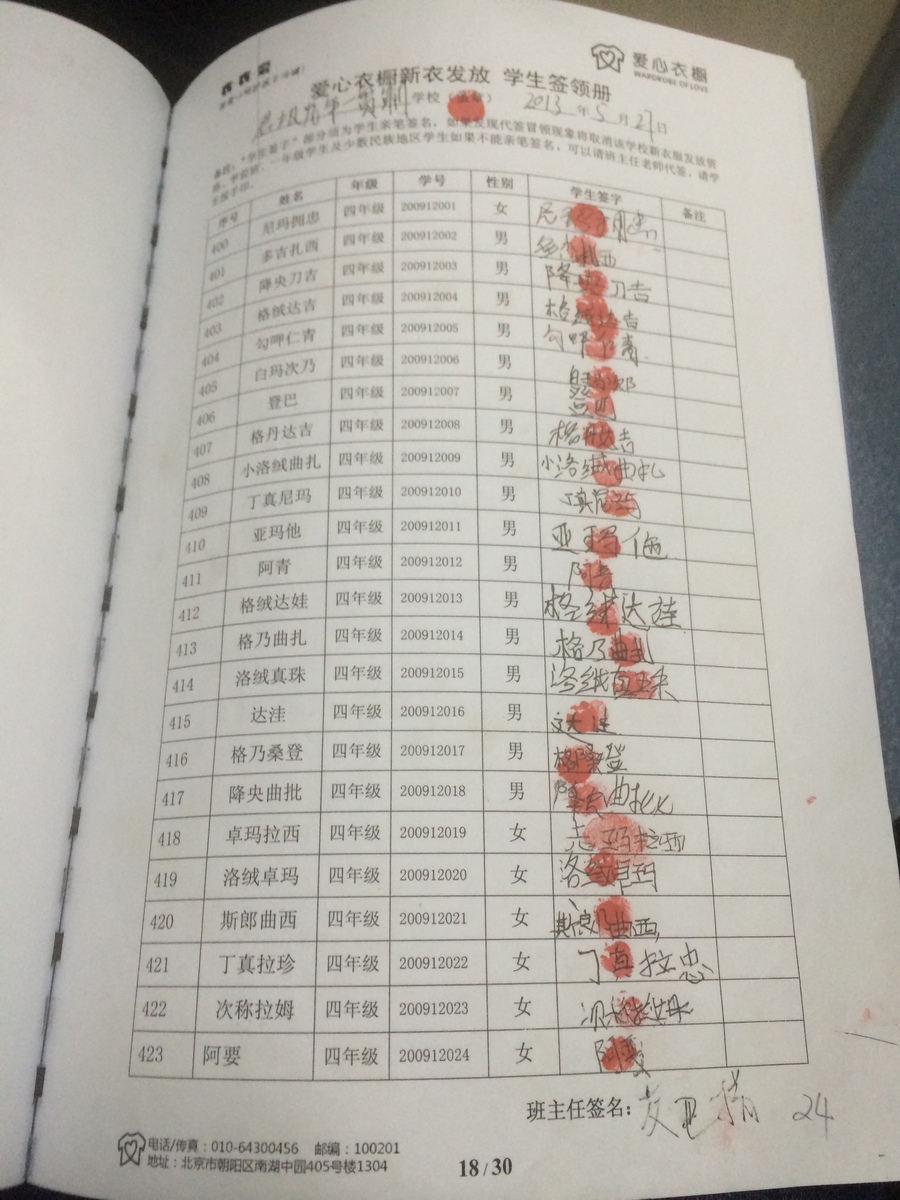 爱心衣橱
WARDROBE OF LOVE
爱心衣橱新衣发放 学生签领册
学校(盖章) 2013年5月27日
备注:"学生签字"部分须为学生亲笔签名,如果发现代签冒领现象将取消该学校新衣服发放资
格。学前班、一年级学生及少数民族地区学生如果不能亲笔签名,可以请班主任老师代签,请学
生按手印。
序号 姓名 年级 学号 性别 学生签字 备注
400 尼玛拥忠 四年级 200912001 女
401 多吉扎西 四年级 200912002 男 扎西
402 降央刀吉 四年级 200912003 男 降央刀吉
403 格绒达吉 四年级 200912004 男 格绒达吉
404 勾呷仁青 四年级 200912005 男 勾呷仁青
405 白玛次乃 四年级 200912006 男
406 登巴 四年级 200912007 男
407 格丹达吉 四年级 200912008 男 格丹达吉
408 小洛绒曲扎 四年级 200912009 男 小洛绒曲扎
409 丁真尼玛 四年级 200912010 男 丁真尼玛
410 亚玛他 四年级 200912011 男 亚玛他
411 阿青 四年级 200912012 男 阿青
412 格绒达娃 四年级 200912013 男 格绒达娃
413 格乃曲扎 四年级 200912014 男 格乃曲扎
414 洛绒真珠 四年级 200912015 男 洛绒真珠
415 达洼 四年级 200912016 男 达洼
416 格乃桑登 四年级 200912017 男 格桑登
417 降央曲批 四年级 200912018 男 降央曲批
418 卓玛拉西 四年级 200912019 女 玛拉西
419 洛绒卓玛 四年级 200912020 女 洛绒卓玛
420 斯郎曲西 四年级 200912021 女 斯郎曲西
421 丁真拉珍 四年级 200912022 女 丁真拉忠
422 次称拉姆 四年级 200912023 女 次称拉姆
423 阿要 四年级 200912024 女 阿要
班主任签名: 24
电话/传真:010-64300456 邮编:100201
地址:北京市朝阳区南湖中园405号楼1304
18/30